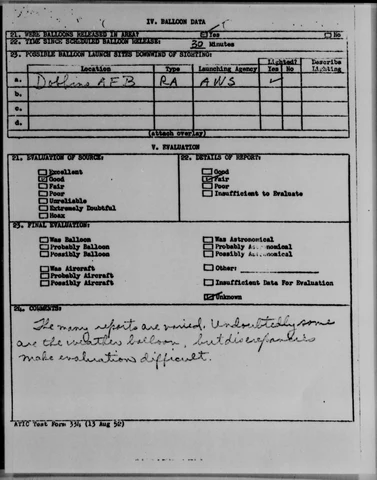 IV. BALLOON DATA
21. WERE BALLOONS RELEASED IN AREA? Yes No
22. TIME SINCE SCHEDULED BALLOON RELEASE: 30 Minutes
23. POSSIBLE BALLOON LAUNCH SITES DOWNWIND OF SIGHTING:
Location Type Launching Agency Lighted? Yes No Describe Lighting
a. Dobbins AFB RA AWS ✓
b.
c.
d.
(attach overlay)
V. EVALUATION
21. EVALUATION OF SOURCE: 22. DETAILS OF REPORT:
Excellent Good
Good Fair
Fair Poor
Poor Insufficient to Evaluate
Unreliable
Extremely Doubtful
Hoax
23. FINAL EVALUATION:
Was Balloon Was Astronomical
Probably Balloon Probably Astronomical
Possibly Balloon Possibly Astronomical
Was Aircraft Other:
Probably Aircraft
Possibly Aircraft Insufficient Data For Evaluation
Unknown
24. COMMENTS:
The many reports are varied. Undoubtedly some
are the weather balloon, but discrepancies
make evaluation difficult.
ATIC Test Form 334 (13 Aug 52)